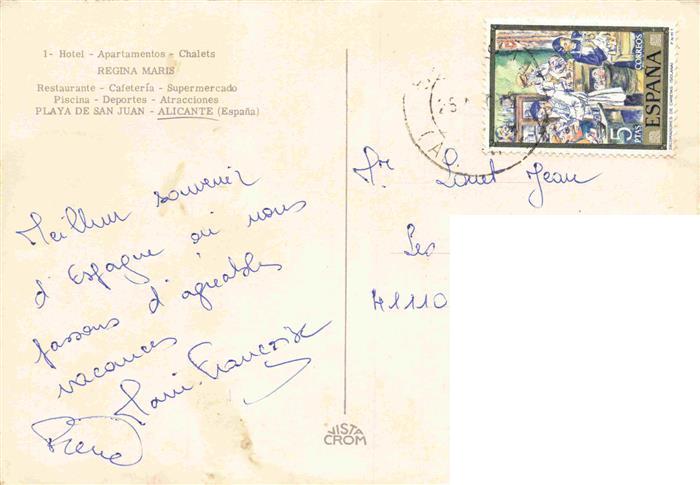 1- Hotel - Apartamentos - Chalets
REGINA MARIS
Restaurante - Cafetería - Supermercado
Piscina - Deportes - Atracciones
PLAYA DE SAN JUAN - ALICANTE (España)
Meilleur souvenir
d'Espagne où nous
passons d'agréables
vacances
Marie-Françoise
René
Mr Louet Jean
Les
41110
CORREOS
ESPAÑA
5
PTAS
25
VISTA
CROM